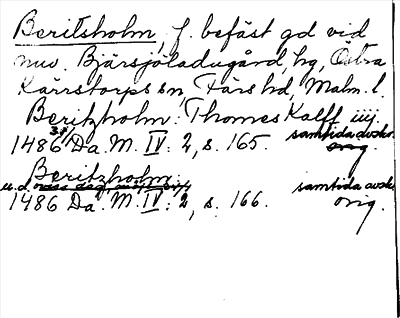 Beritsholm, f. befäst gd vid
nuv. Bjärsjöladugård, hg, Östra
Kärrstorps sn, Färs hd, Malm. l.
Beritzholm: Thomes Kalff iiij
1486 31/1 Da. M. IV: 2, s. 165. samtida avskr. orig.
Beritzholm:
u. d.
1486 Da. M. IV: 2, s. 166. samtida avskr.
orig.